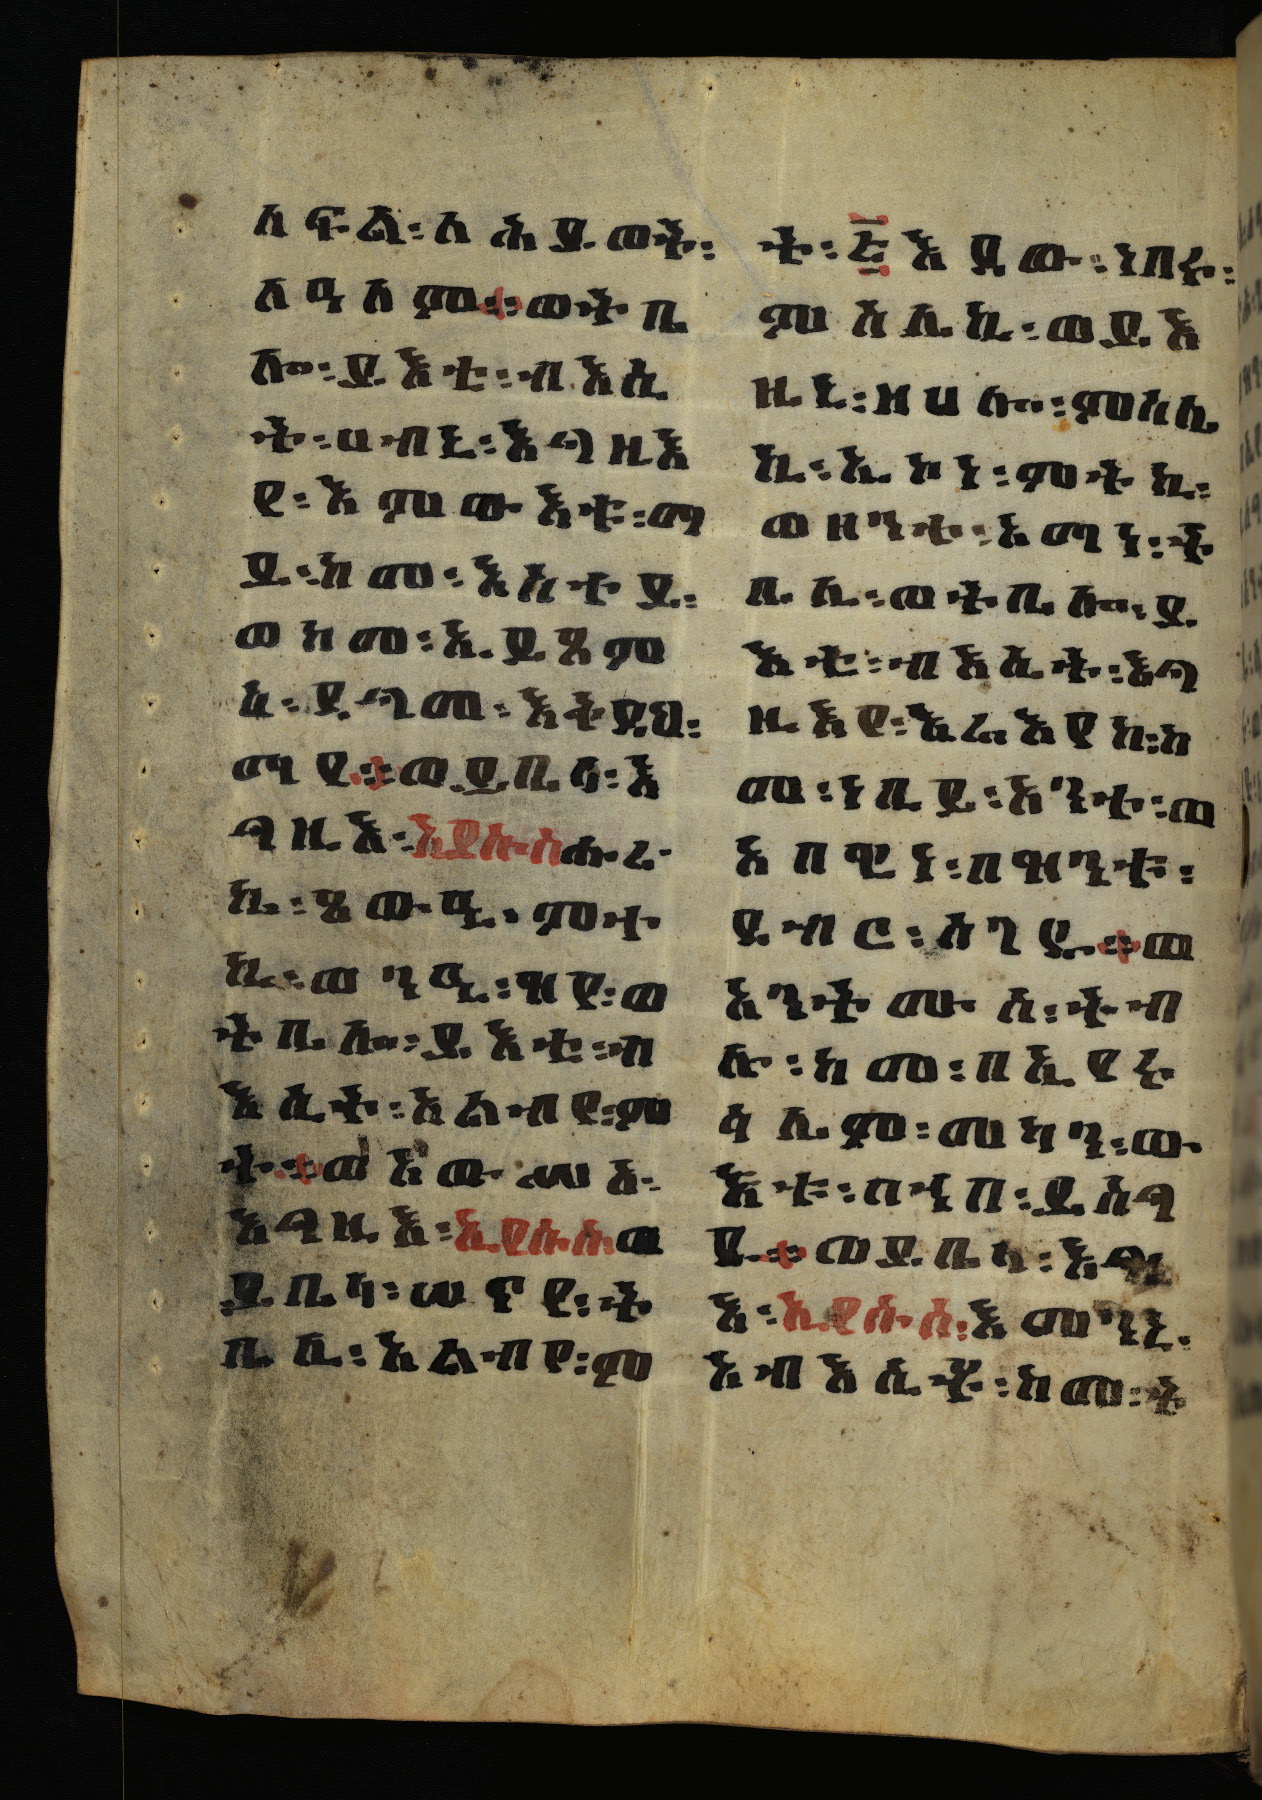 ለፍል፡ለሕይወት፡
ለዓለም፡፡ወትቤ
ሎ፡ይእቲ፡ብእሲ
ት፡ሀብኒ፡እግዚእ
የ፡እምውእቱ፡ማ
ይ፡ከመ፡እስተይ፡
ወከመ፡ኢይጸም
እ፡ዳግመ፡
ማየ፡፡ወይቤላ፡እ
ግዚእ፡ኢየሱስሑሪ
ኪ፡ጸውዒ፡ምተ
ኪ፡ወንዒ፡ዝየ፡ወ
ትቤሎ፡ይእቲ፡ብ
እሲት፡አልብየ፡ም
ት፡፡ወአውሥአ፡
እግዚእ፡ኢየሱስወ
ይቤላ፡ሠናየ፡ት
ቤሊ፡አልብየ፡ም
ት፡፭እደው፡ነበሩ፡
ምስሌኪ፡ወይእ
ዜኒ፡ዘሀሎ፡ምስሌ
ኪ፡ኢኮነ፡ምተኪ፡
ወዘንተ፡እማነ፡ት
ቤሊ፡ወትቤሎ፡ይ
እቲ፡ብእሲት፡እግ
ዚእየ፡እሬእየከ፡ከ
መ፡ነቢይ፡አንተ፡ወ
አበዊነ፡በዝንቱ፡
ደብር፡ሰገዱ፡፡ወ
አንትሙሰ፡ትብ
ሉ፡ከመ፡በኢየሩ
ሳሌም፡መካን፡ው
እቱ፡በኀበ፡ይሰግ
ዱ፡፡ወይቤላ፡እግዚ
እ፡ኢየሱስ፡እመንኒ፡
አብእሲቶ፡ከመ፡ት